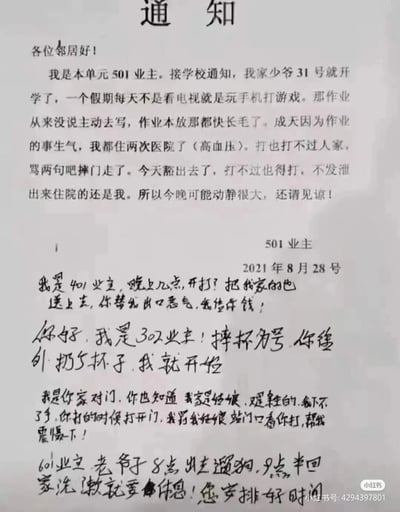 通 知
各位邻居好！
我是本单元 501 业主。接学校通知，我家少爷 31 号就开
学了，一个假期每天不是看电视就是玩手机打游戏。那作业
从来没说主动去写，作业本放那都快长毛了。成天因为作业
的事生气，我都住两次医院了（高血压）。打也打不过人家，
骂两句吧摔门走了。今天豁出去了，打不过也得打，不发泄
出来住院的还是我。所以今晚可能动静很大，还请见谅！
501 业主
2021 年 8 月 28 号
我是401业主，晚上几点，开打？把我家的也
送上去，你帮我出口恶气，我给你钱！
你好，我是302业主！摔杯为号，你往
外扔个杯子，我就开始
我是你家对门，你也知道 我家是好娘，
了手，你打的时候打开门，我 站门口看你打，帮我
震慑一下！
601业主 老爷子 8点出去遛狗，9点半回
家洗漱就要休息！您安排好时间
小红书
小红书号: 4294397801